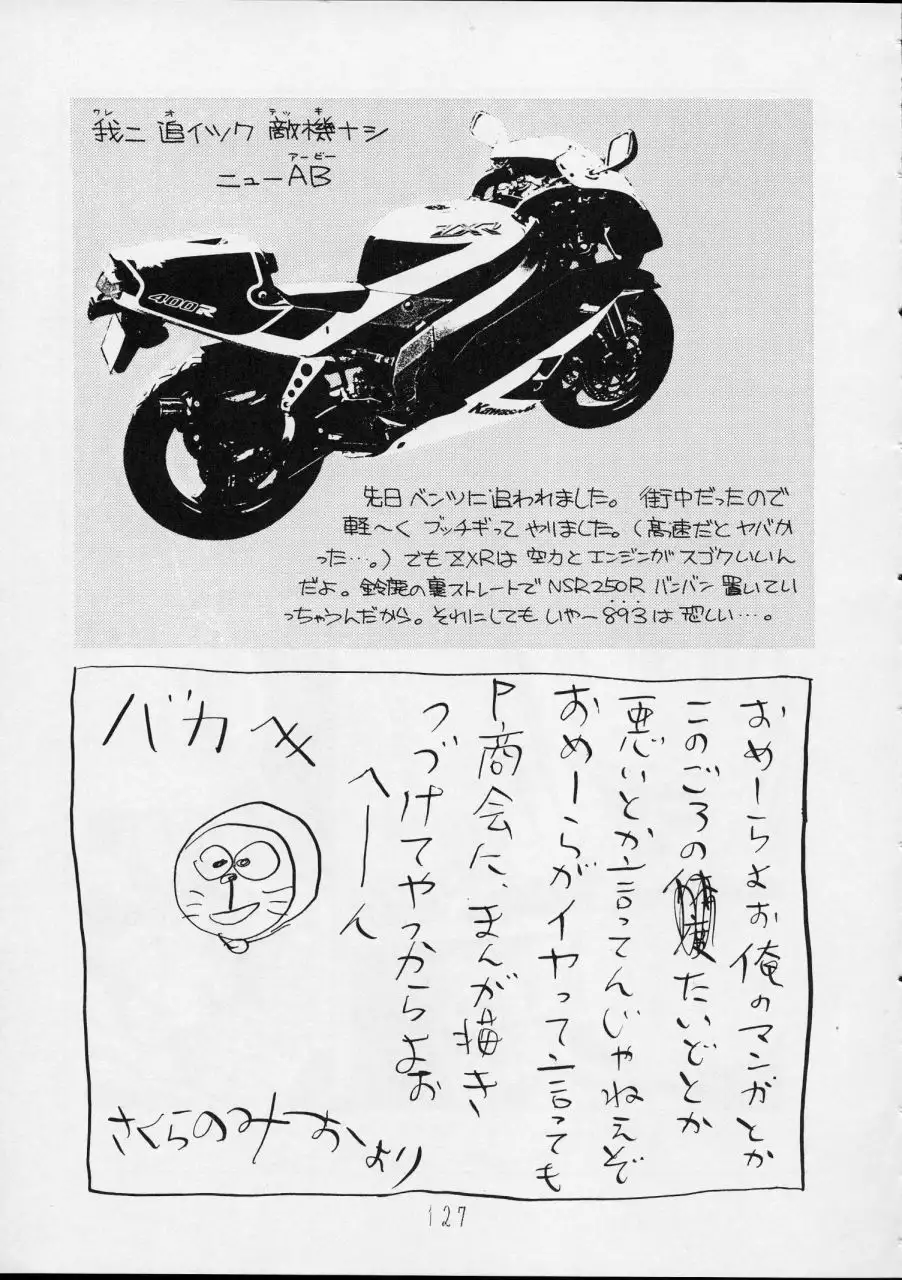 我ニ 追イツク 敵機ナシ
ワレ オ テッキ
ニューAB
アービー
ZXR
400R
Kawasaki
先日 ベンツに追われました。 街中だったので
軽〜く ブッチギって やりました。(高速だと ヤバか
った…。)でも ZXRは 空力と エンジンが スゴクいいん
だよ。鈴鹿の裏ストレートで NSR250R バンバン 置いてい
っちゃうんだから。それにしても いやー893は 恐しい…。
おめーらよお俺のマンガとか
このごろの たいどとか
悪いとか言ってんじゃねえぞ
おめーらがイヤって言っても
P.商会に、まんが描き
つづけてやっからよお
へーん
バカめ
さくらのみおより
127